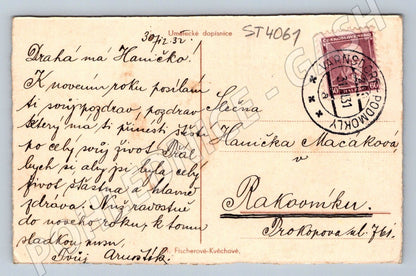 Umělecké dopisnice
ST4061
30/12 32.
Drahá má Haničko.
K novému roku posílám
ti svůj pozdrav, pozdrav
který má ti přinésti štěstí
po celý svůj život. Přál
bych si aby jsi byla celý
život šťastna a hlavně
zdráva. Nuž radostně
do nového roku, k tomu
sladkou
Tvůj Arnoštek.
Slečna
Hanička Macáková
v
Rakovníku.
Prokopova ul. 761.
VARNSDORF
PODMOKLY
Fischerové-Kvěchové.